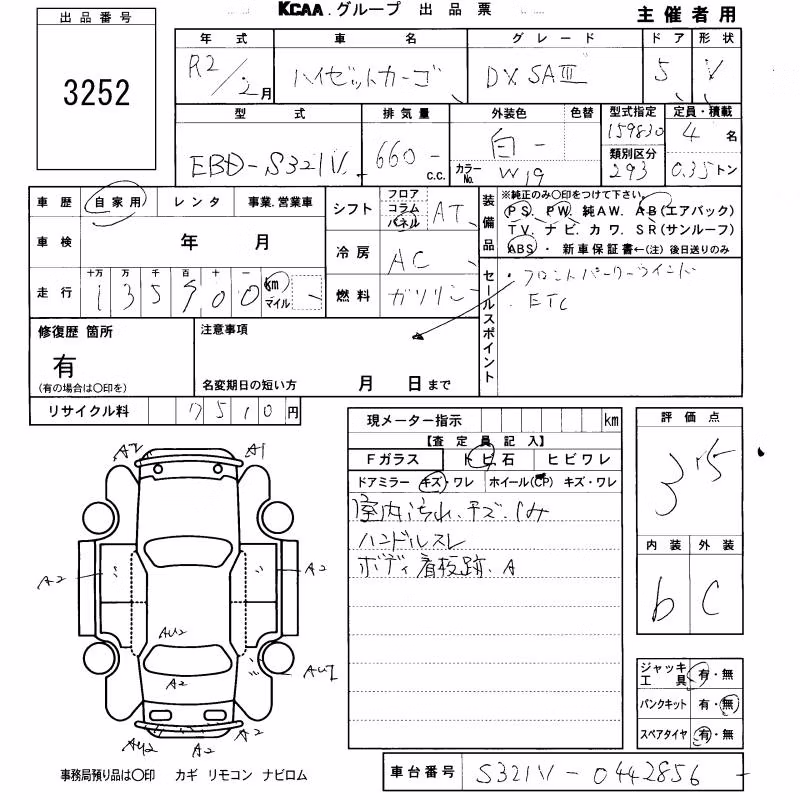 KCAA.グループ 出品票
主催者用
出品番号
3252
年式 車名 グレード ドア 形状
R2/2月 ハイゼットカーゴ DX SAⅢ 5 V
型式 排気量 外装色 色替 型式指定 定員・積載
EBD-S321V 660 c.c. 白 カラーNo. W19 159830 4名
類別区分
293 0.35トン
車歴 自家用 レンタ 事業.営業車
シフト フロア コラム パネル AT
装備品 ※純正のみ〇印をつけて下さい。
PS. PW. 純AW. AB(エアバック)
TV. ナビ. カワ. SR(サンルーフ)
ABS・ 新車保証書←(注) 後日送りのみ
車検 年 月
冷房 AC
走行 十万 万 千 百 十 一
135900 km マイル
燃料 ガソリン
セールスポイント
・フロントパワーウインド
・ETC
修復歴 箇所
有
(有の場合は〇印を)
注意事項
名変期日の短い方 月 日まで
リサイクル料 7510円
現メーター指示 km
【査定員記入】
Fガラス トビ石 ヒビワレ
ドアミラー キズ・ワレ ホイール(CP) キズ・ワレ
室内汚れ.キズ.シミ
ハンドルスレ
ボディ看板跡.A
評価点
3.5
内装 外装
b C
A2 A1
A2 A2
AU2
AU2
A2
AU2 A2 A2
ジャッキ工具 有・無
パンクキット 有・無
スペアタイヤ 有・無
事務局預り品は〇印 カギ リモコン ナビロム
車台番号 S321V-0442856